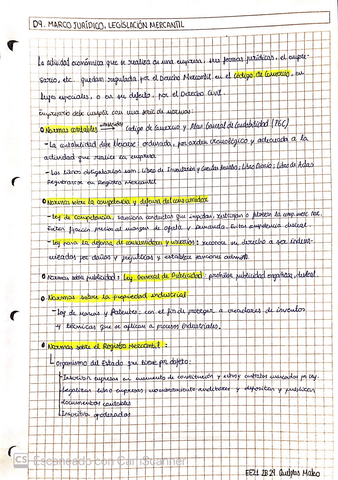 D9. MARCO JURÍDICO. LEGISLACIÓN MERCANTIL
La actividad económica que se realiza en una empresa, sus formas jurídicas, el empre-
sario, etc. quedan regulada por el Derecho Mercantil en el Código de Comercio, en
leyes especiales, o en su defecto, por el Derecho Civil.
Empresario debe cumplir con una serie de normas:
Normas contables Código de Comercio y Plan General de Contabilidad (PGC)
- La contabilidad debe llevarse ordenada, por orden cronológico y adecuada a la
actividad que realice en empresa
- Los libros obligatorios son: Libro de Inventarios y Cuentas Anuales; Libro Diario; Libro de Actas
Registrarse en Registro Mercantil
Normas sobre la competencia y defensa del consumidor
- Ley de Competencia, sanciona conductas que impidan, restrinjan o falseen la
Evitar fijación precios al margen de oferta y demanda. Evitar competencia desleal.
- Ley para la defensa de consumidores y usuarios: reconoce su derecho a ser indem-
nizados por daños y perjuicios y establece
Normas sobre publicidad: Ley General de Publicidad: prohíbe publicidad engañosa, desleal.
Normas sobre la propiedad industrial
- Ley de Marcas y Patentes: con el fin de proteger a creadores de inventos
y técnicas que se aplican a procesos industriales.
Normas sobre el Registro Mercantil:
Organismo del Estado que tiene por objeto:
Inscribir empresas en momento de constitución y otros contratos marcados por ley.
Legalizar libros empresas, nombramiento auditores y depositar y publicar
documentos contables
Inscribir apoderados
CS Escaneado con CamScanner